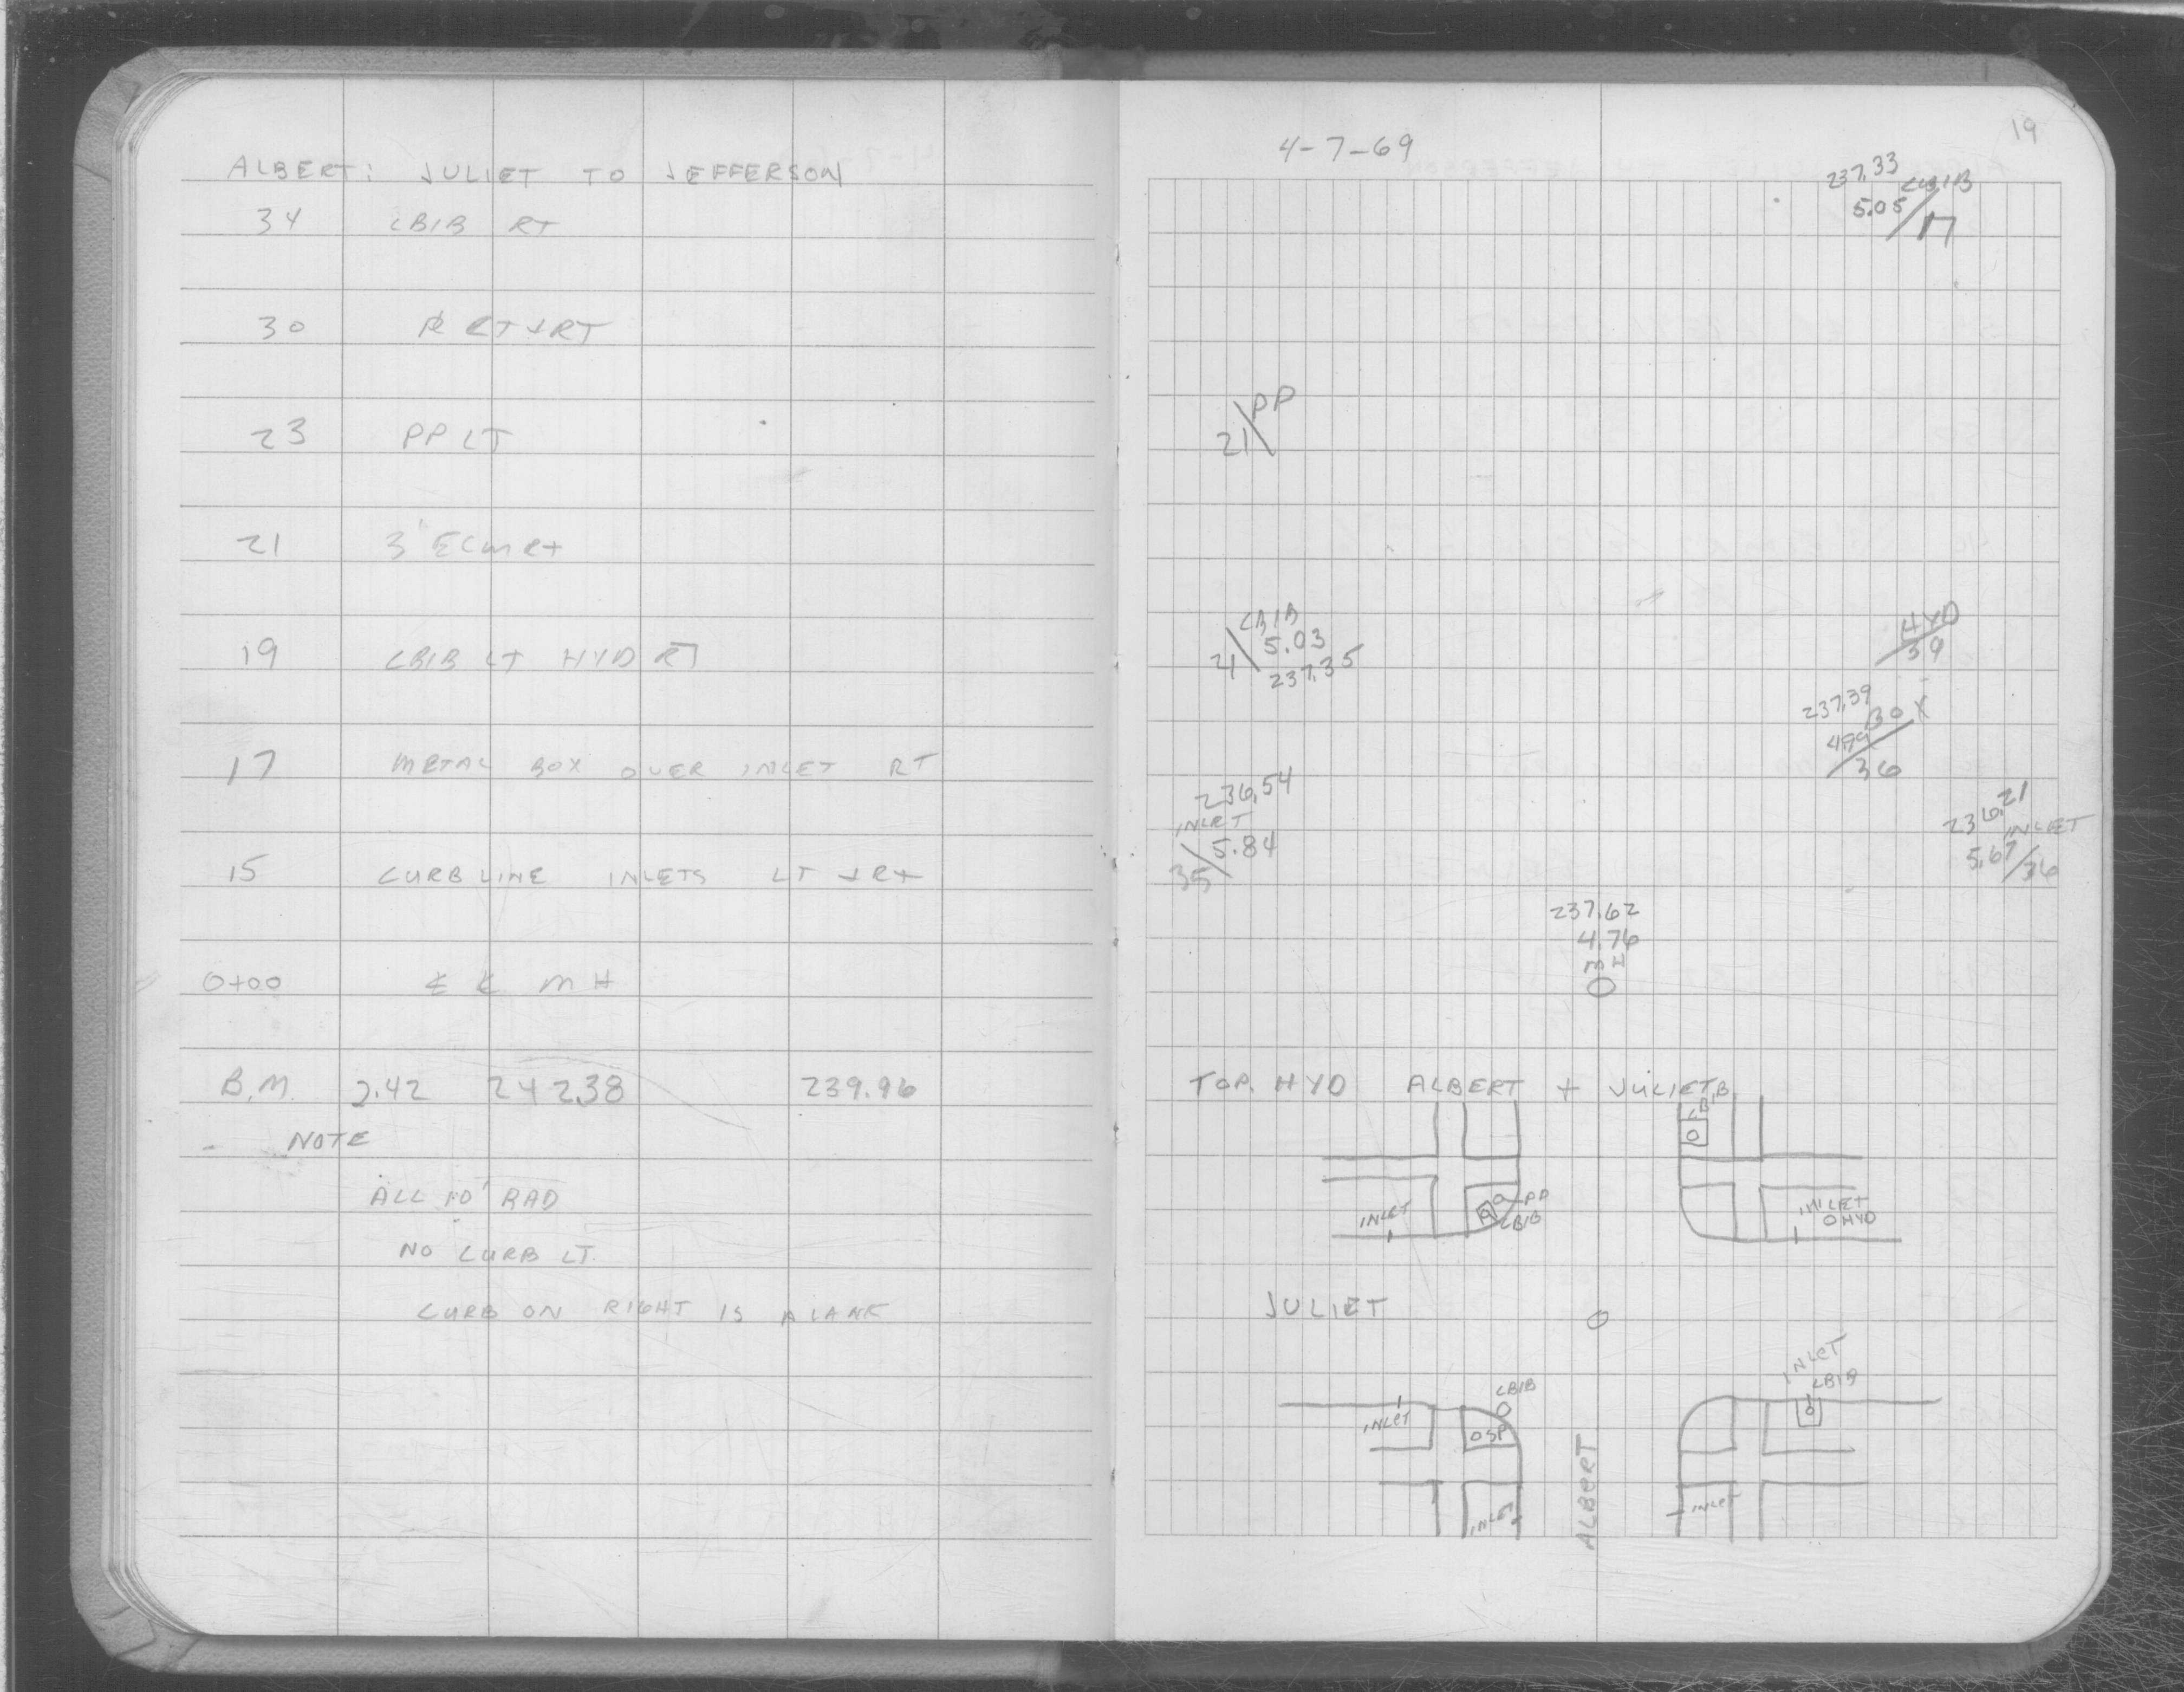 ALBERT: JULIET TO JEFFERSON
34 CBIB RT
30 ⅊ LT + RT
23 PP LT
21 3' E CM RT
19 CBIB LT HYD RT
17 METAL BOX OVER INLET RT
15 CURB LINE INLETS LT + RT
0+00 ℄ ℄ MH
B.M. 2.42 242.38 239.96
NOTE
ALL 10' RAD
NO CURB LT.
CURB ON RIGHT IS
19
4-7-69
237.33
CBIB
5.05 / 17
PP
21
CBIB
5.03
21
237.35
HYD
39
237.39
BOX
4.99
36
236.54
INLET
5.84
35
236.21
INLET
5.67 / 36
237.62
4.76
MH
TOP. HYD ALBERT + JULIET
CBIB
INLET
PP
CBIB
INLET
HYD
JULIET
INLET
CBIB
SP
INLET
CBIB
INLET
ALBERT
INLET